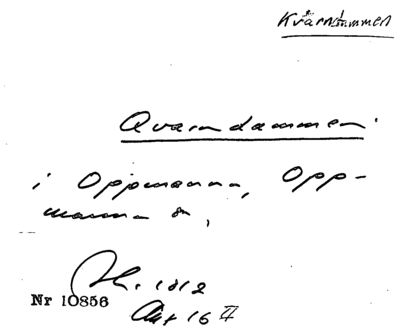 Kvarndammen
Qvarndammen
i Oppmanna, Opp-
manna sn,
Sk. 1812
Nr 10856
Akt 16 II